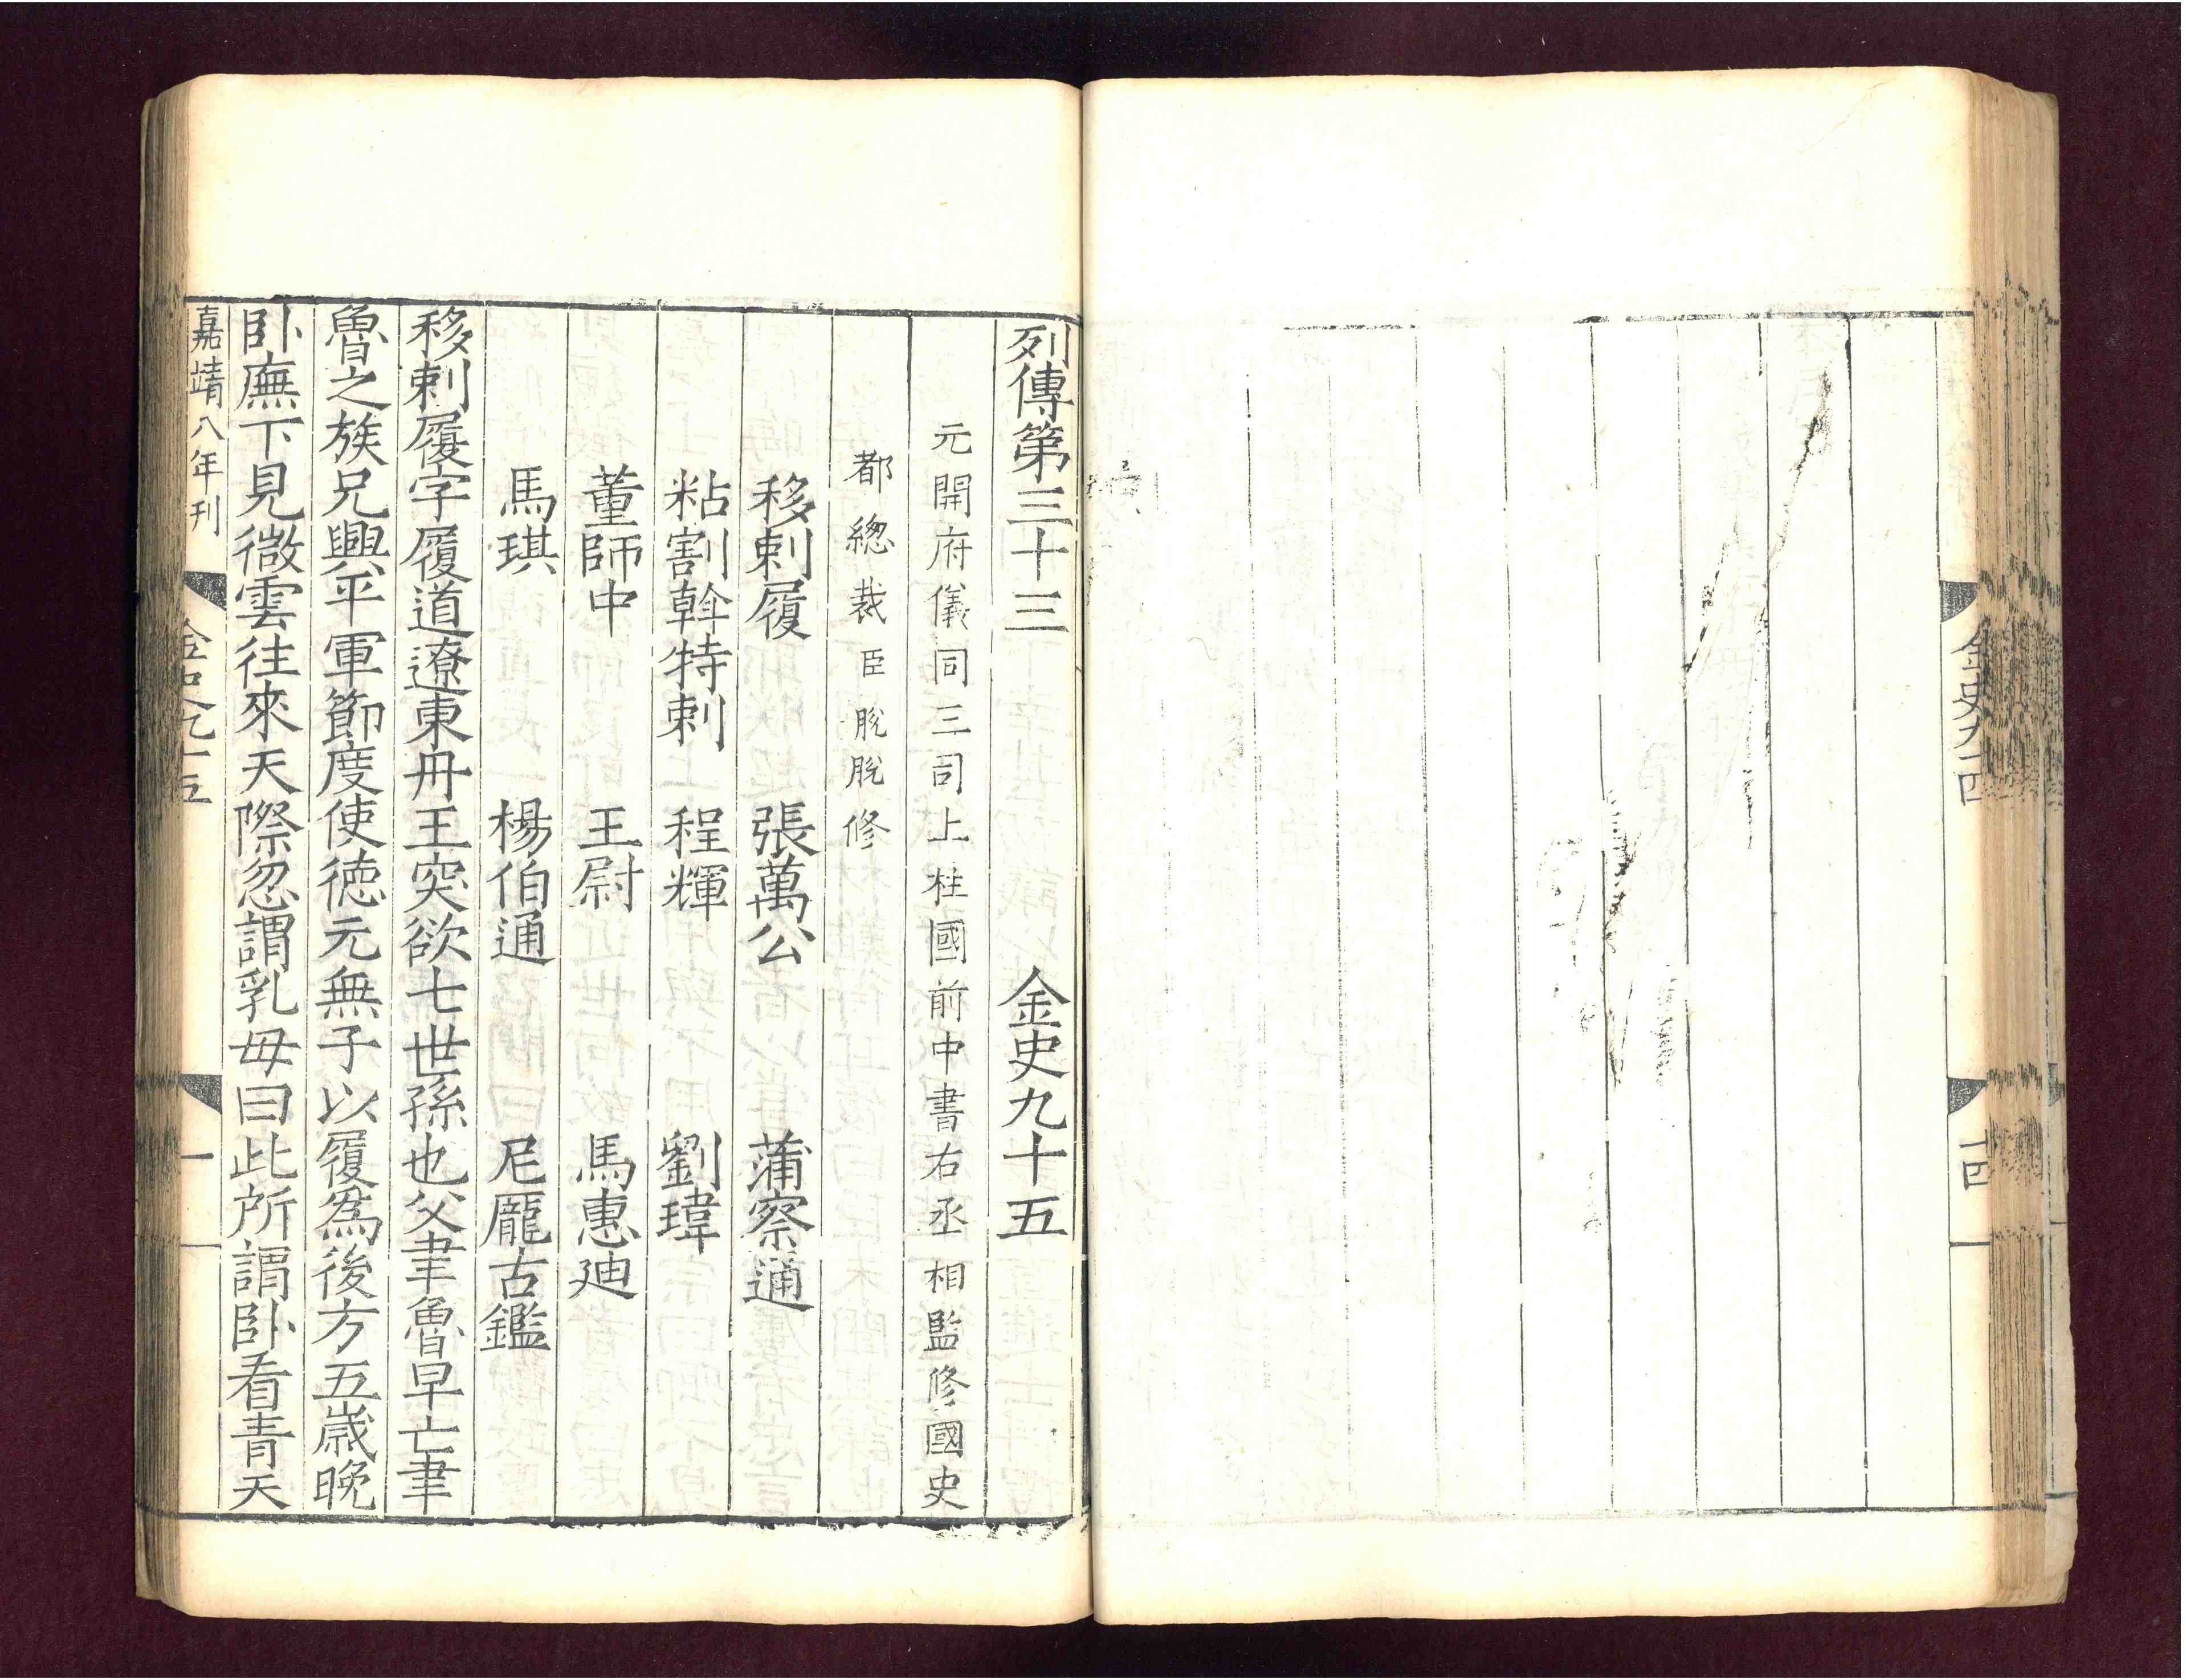 金史九十四
十四
列傳第三十三 金史九十五
元開府儀同三司上柱國前中書右丞相監修國史
都總裁臣脫脫修
移剌履 張萬公 蒲察通
粘割斡特剌 程輝 劉瑋
董師中 王尉 馬惠迪
馬琪 楊伯通 尼厖古鑑
移剌履字履道遼東丹王突欲七世孫也父聿魯早亡聿
魯之族兄興平軍節度使徳元無子以履爲後方五歲晚
卧廡下見微雲往來天際忽謂乳母曰此所謂卧看青天
嘉靖八年刊
金史九十五
一